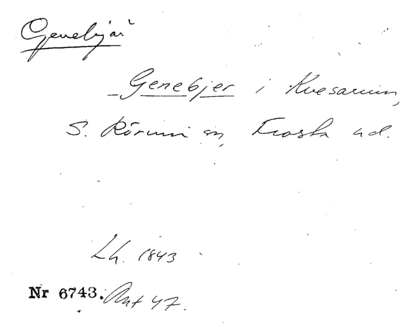 Genebjär
Genebjer i Kvesarum,
S. Rörum sn, Frosta hd.
Lh. 1843
Nr 6743. Ant 47.